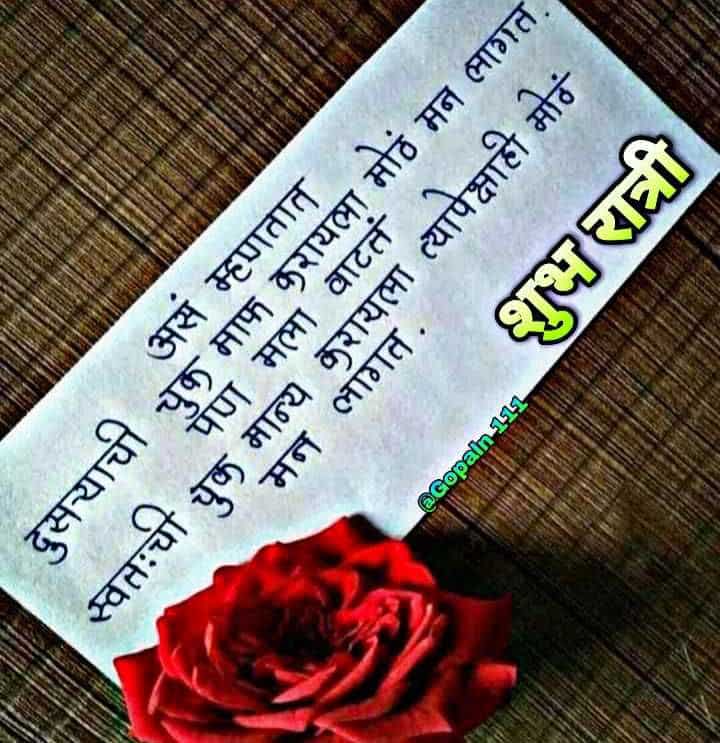 असं म्हणतात
दुसऱ्याची चुक माफ करायला मोठं मन लागत.
पण मला वाटतं
स्वतःची चुक मान्य करायला त्यापेक्षाही मोठं
मन लागत.
शुभ रात्री
@Gopaln-111